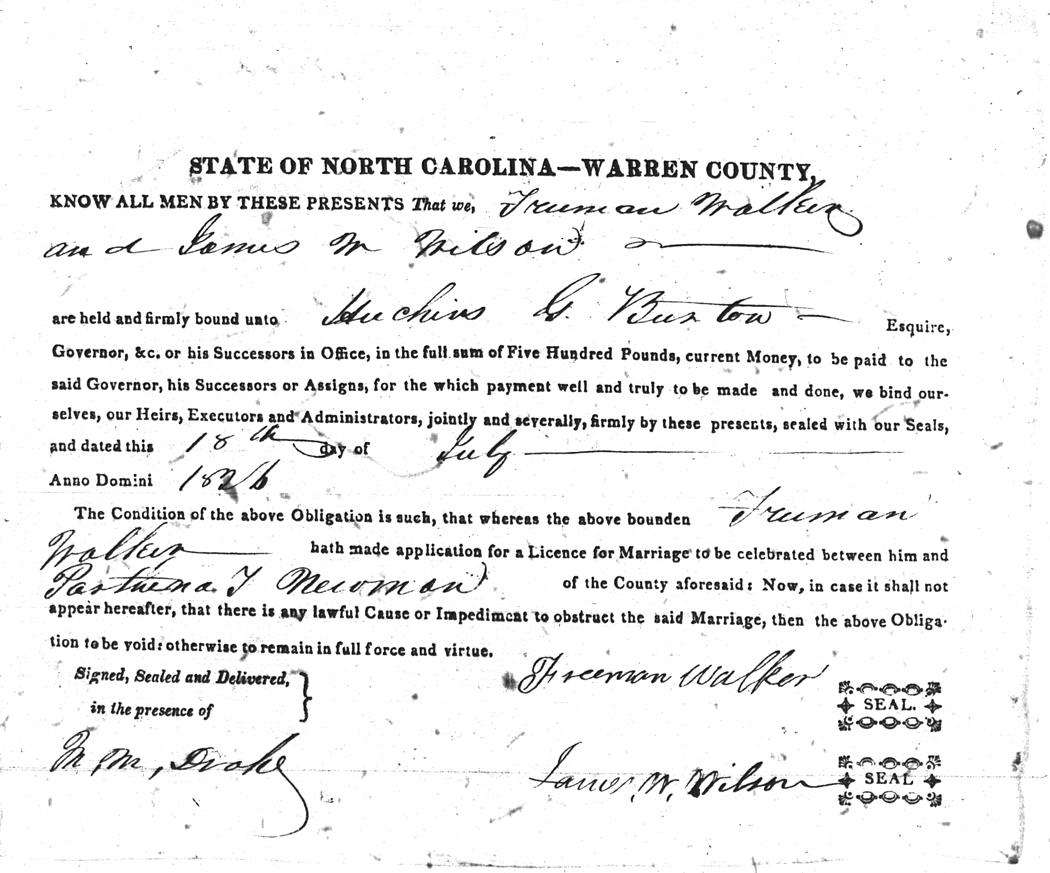 STATE OF NORTH CAROLINA—WARREN COUNTY,
KNOW ALL MEN BY THESE PRESENTS That we, Truman Walker
and James W Wilson
are held and firmly bound unto Huchins G. Burton — Esquire,
Governor, &c. or his Successors in Office, in the full sum of Five Hundred Pounds, current Money, to be paid to the
said Governor, his Successors or Assigns, for the which payment well and truly to be made and done, we bind our-
selves, our Heirs, Executors and Administrators, jointly and severally, firmly by these presents, sealed with our Seals,
and dated this 18th day of July
Anno Domini 1826
The Condition of the above Obligation is such, that whereas the above bounden Truman
Walker hath made application for a Licence for Marriage to be celebrated between him and
T Newman of the County aforesaid: Now, in case it shall not
appear hereafter, that there is any lawful Cause or Impediment to obstruct the said Marriage, then the above Obliga-
tion to be void: otherwise to remain in full force and virtue.
Signed, Sealed and Delivered,
in the presence of
Freeman Walker SEAL.
M. M. Drake
James. W. Wilson SEAL